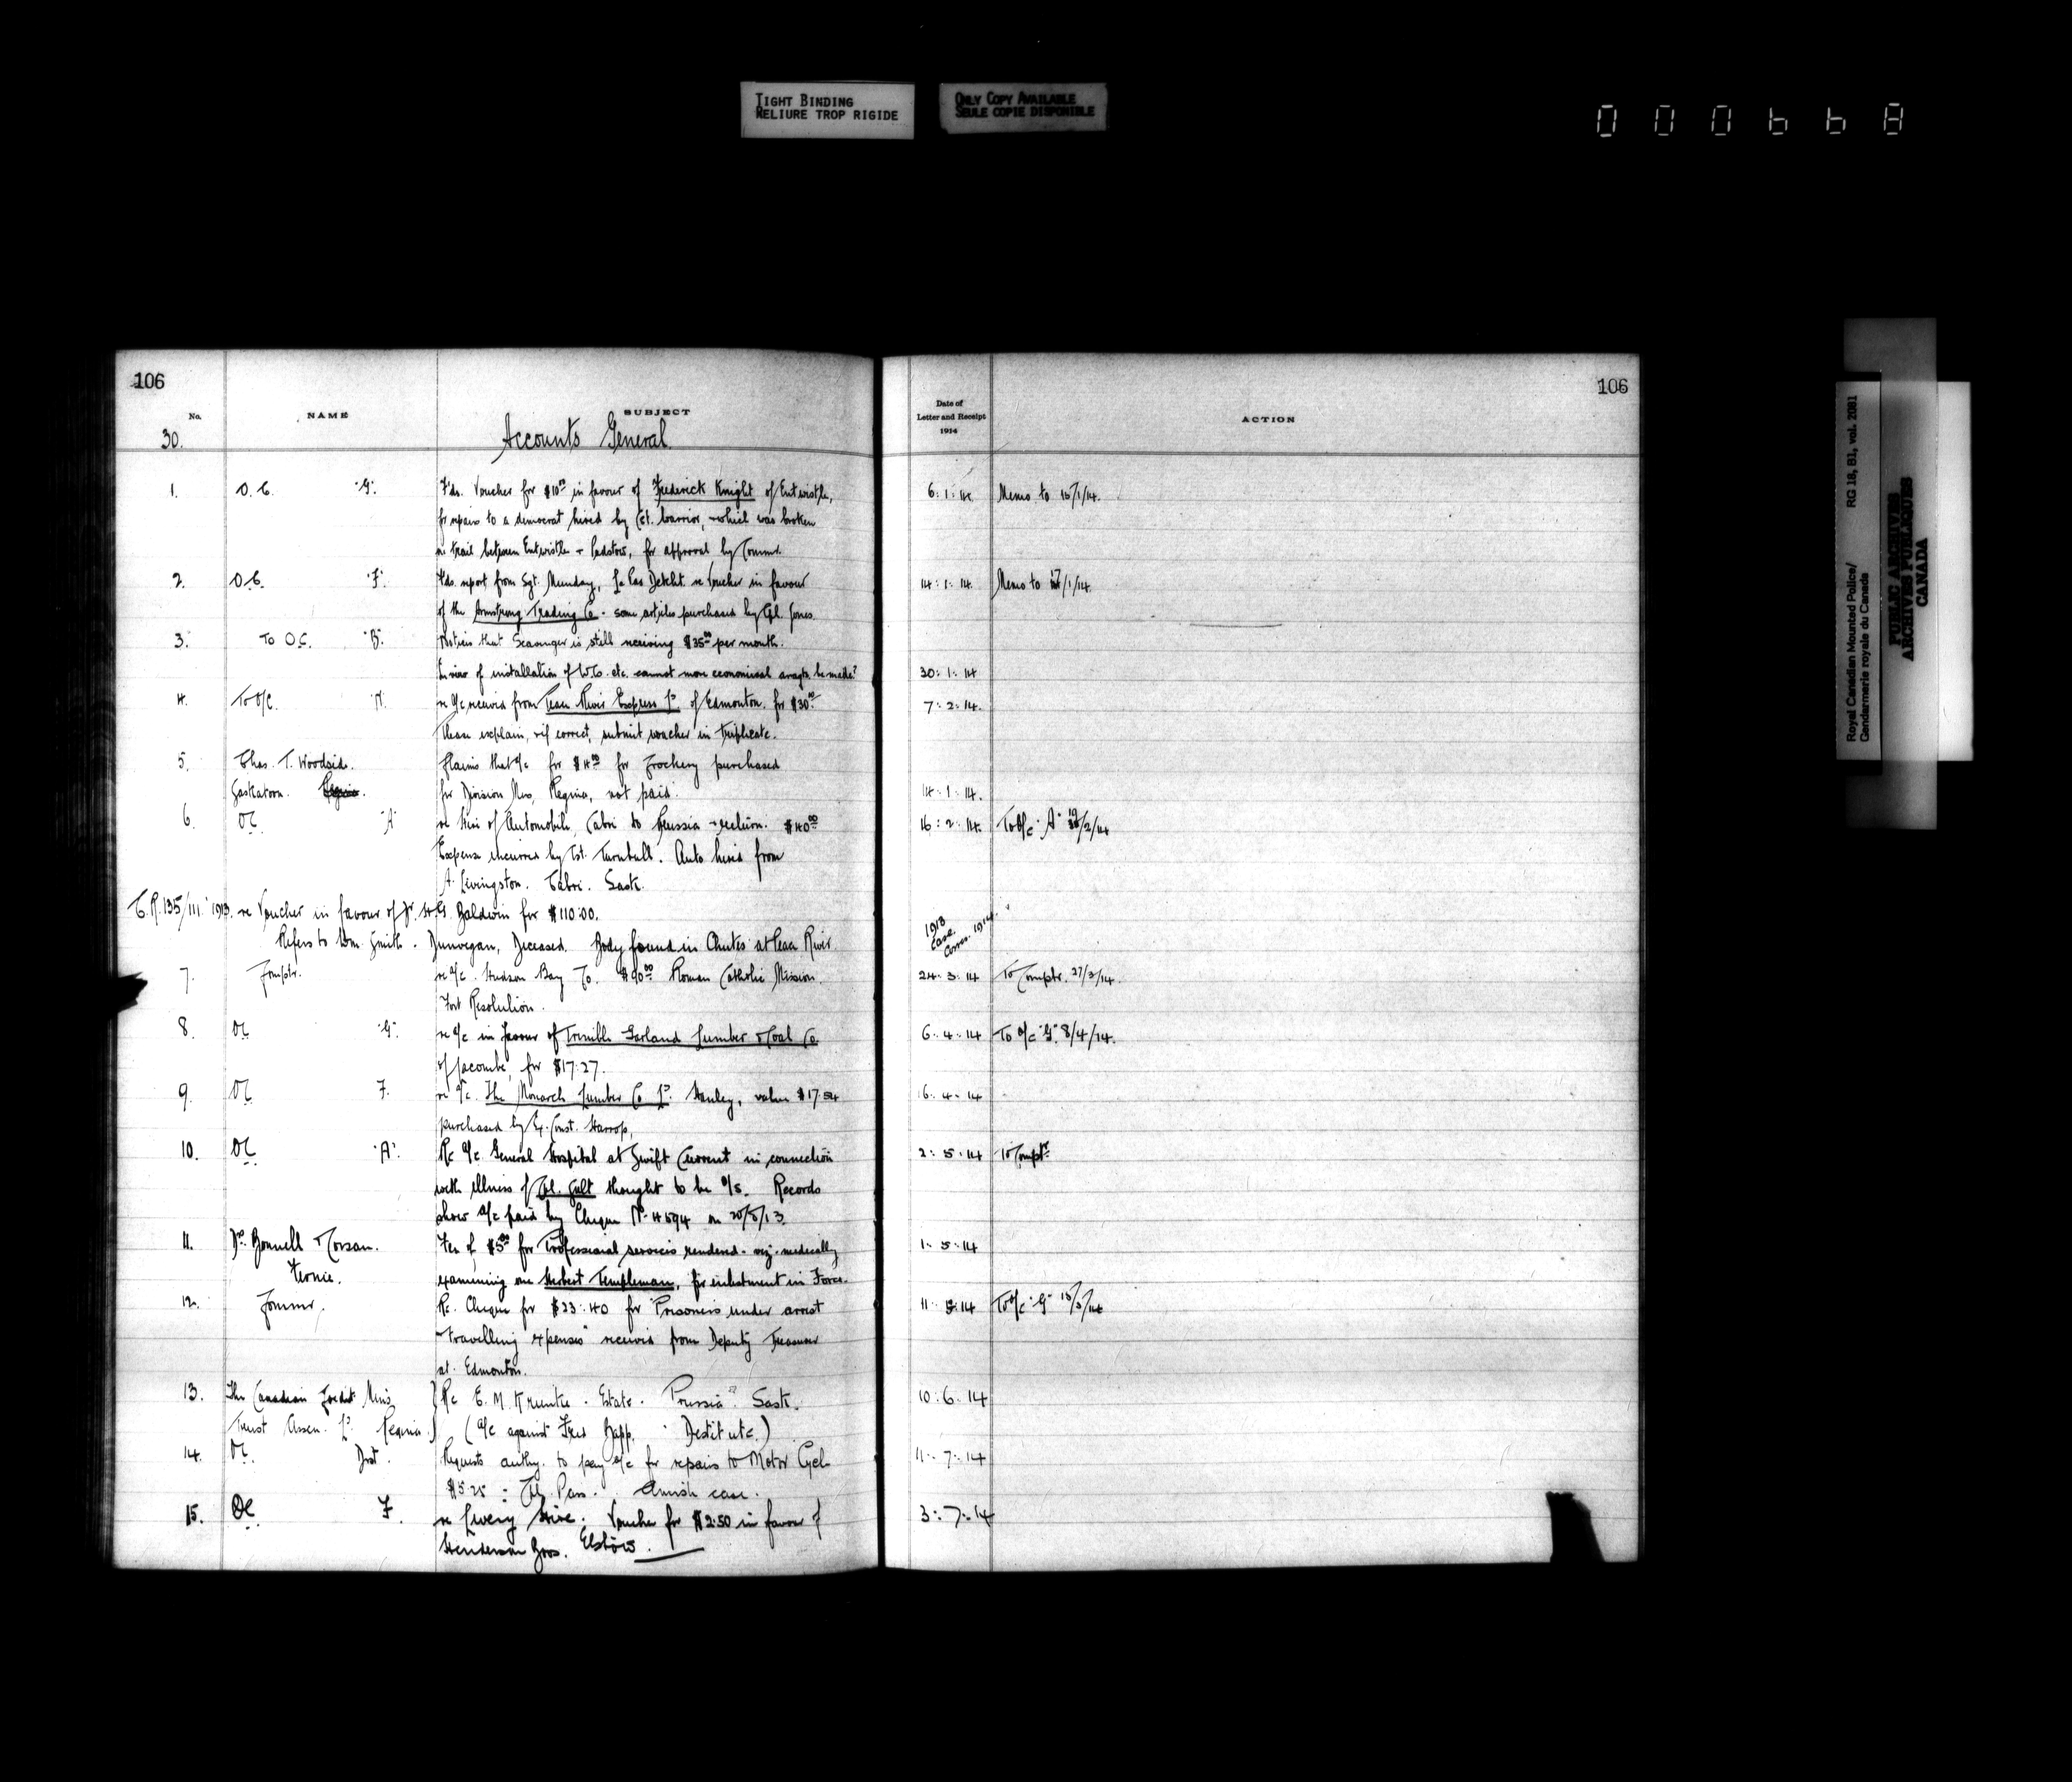 TIGHT BINDING
RELIURE TROP RIGIDE
ONLY COPY AVAILABLE
SEULE COPIE DISPONIBLE
000668
106
No. NAME SUBJECT
30. Accounts General
1. O.C. "G". Fds. Voucher for $10.00 in favour of Frederick Knight of Entwistle,
for repairs to a democrat hired by Cst. Warrior, which was broken
on trail between Entwistle + Padstow, for approval by Commr.
2. O.C. "F". Fds. report from Sgt. Munday, Le Pas Detcht. re Voucher in favour
of the Armstrong Trading Co. some articles purchased by Cpl. Jones.
3. To O.C. "B". Notices that Scavenger is still receiving $35.00 per month.
In view of installation of W.C. etc. cannot more economical arragts. be made?
4. To O/C. "N". re a/c received from Peace River Express Ld. of Edmonton. for $30.00
Please explain, + if correct, submit voucher in triplicate.
5. Chas. T. Woodside. Claims that a/c for $4.00 for Crockery purchased
Saskatoon. Regina. for Division Mess, Regina, not paid.
6. OC. "A" re hire of Automobile, Cabri to Prussia + return. $40.00
Expense incurred by Cst. Turnbull. Auto hired from
A. Livingston. Cabri. Sask.
C.R. 135/111. 1913. re Voucher in favour of Dr. H.G. Baldwin for $110.00.
Refers to Wm. Smith. Dunvegan, Deceased. Body found in Chutes at Peace River
7. Comptr. re a/c. Hudson Bay Co. $90.00 Roman Catholic Mission.
Fort Resolution.
8. OC "G". re a/c in favour of Trimble Garland Lumber + Coal Co
of Lacombe, for $17.27.
9. OC. F. re a/c. The Monarch Lumber Co Ld. Hanley, value $17.54
purchased by Ex. Const. Harrop,
10. OC "A". Re a/c. General Hospital at Swift Current in connection
with illness of Cpl. Galt thought to be o/s. Records
show a/c paid by Cheque No. 4594 on 20/8/13.
11. Drs. Bonnell + Corsan. Fee of $5.00 for Professional services rendered - viz. medically
Fernie. examining one Herbert Templeman, for enlistment in Force.
12. Commr. Re. Cheque for $23.40 for "Prisoners under arrest
travelling expenses" received from Deputy Treasurer
at Edmonton.
13. The Canadian Credit Men's Re E. M. Estate. Prussia. Sask.
Trust Assn. Ld. Regina. (a/c against Fred Bapp. Destitute.)
14. OC. Dist. Requests authy. to pay a/c for repairs to Motor Cycle
$5.25 : case.
15. OC. F. re Livery Hire. Voucher for $2.50 in favour of
Henderson Bros. Elstow.
106
Date of
Letter and Receipt
1914
ACTION
6. 1. 14. Memo to 15/1/14.
14. 1. 14. Memo to 17/1/14.
30. 1. 14
7. 2. 14.
14. 1. 14.
16. 2. 14. To O/C "A" 19/2/14
1913
Case.
Corres. 1914.
24. 3. 14 To Comptr. 27/3/14.
6. 4. 14 To O/C "G". 8/4/14.
16. 4. 14
2. 5. 14 To Comptr.
1. 5. 14
11. 5. 14 To O/C "G" 15/5/14
10. 6. 14
11. 7. 14
3. 7. 14
Royal Canadian Mounted Police/ RG 18, B1, vol. 2081
Gendarmerie royale du Canada
PUBLIC ARCHIVES
ARCHIVES PUBLIQUES
CANADA